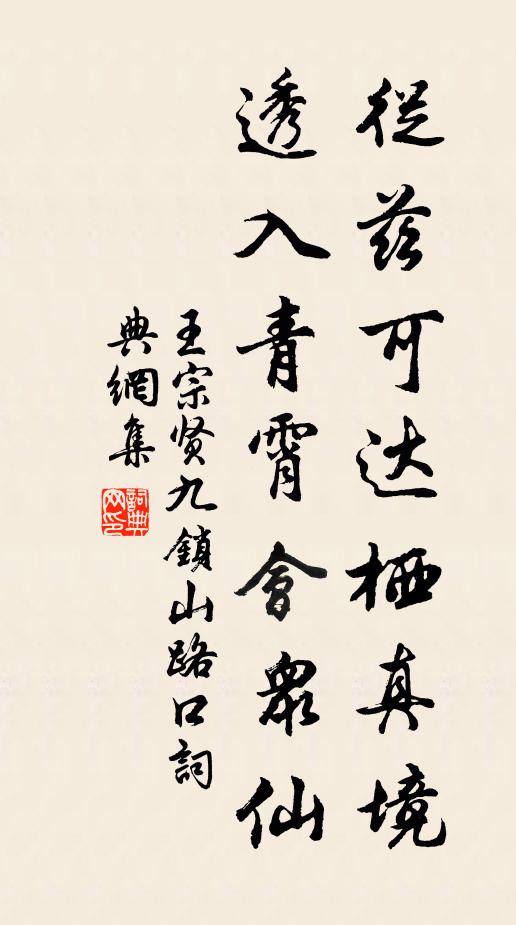 從茲可达栖真境
透入青霄會眾仙
王宗贤九鎖山路口詞
典網集
詞典
网印